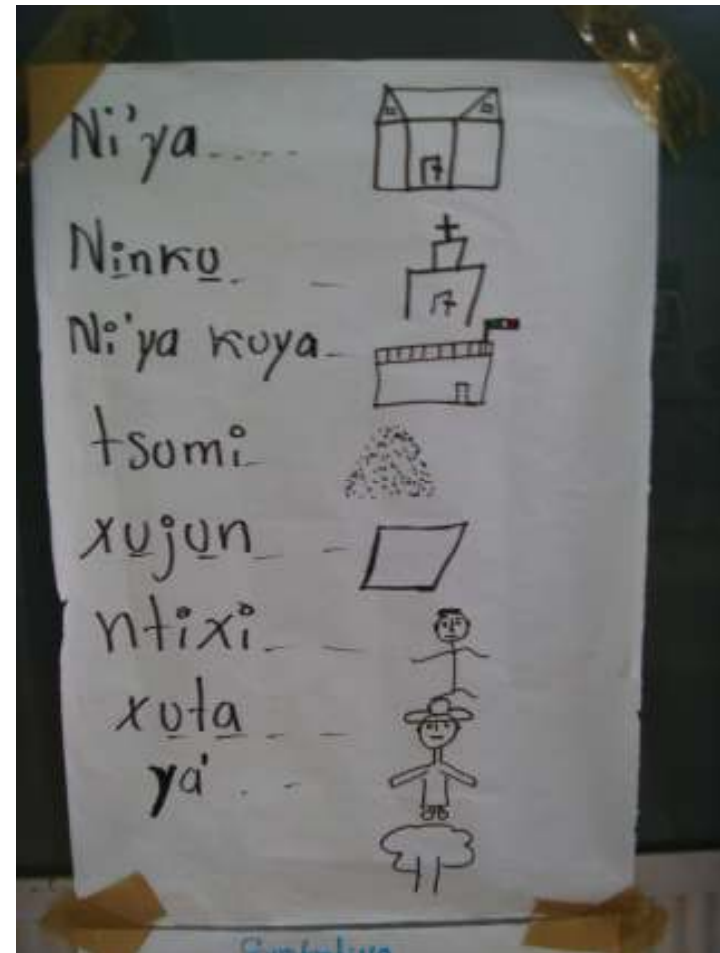 Ni'ya....
Ni̱nku̱. -
Ni'ya kuya-
tsomi-
xu̱ju̱n - -
ntixi - -
xu̱ta̱ - -
ya' . . -